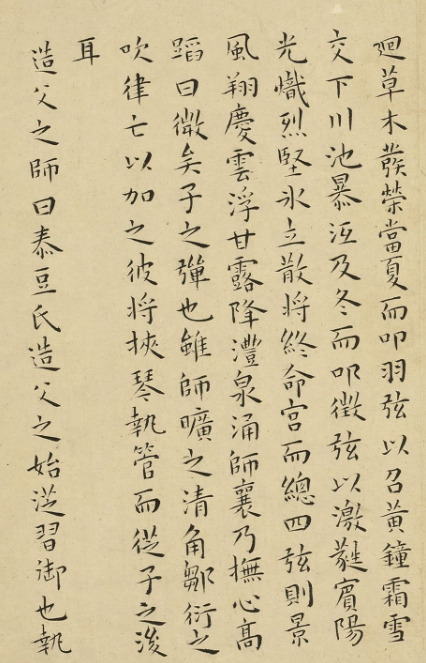 廻草木發榮當夏而叩羽弦以召黃鐘霜雪
交下川池暴沍及冬而叩徵弦以激蕤賓陽
光熾烈堅氷立散將終命宮而總四弦則景
風翔慶雲浮甘露降澧泉涌師襄乃撫心高
蹈曰微矣子之彈也雖師曠之清角鄒衍之
吹律亡以加之彼將挾琴執管而從子之後
耳
造父之師曰泰豆氏造父之始從習御也執